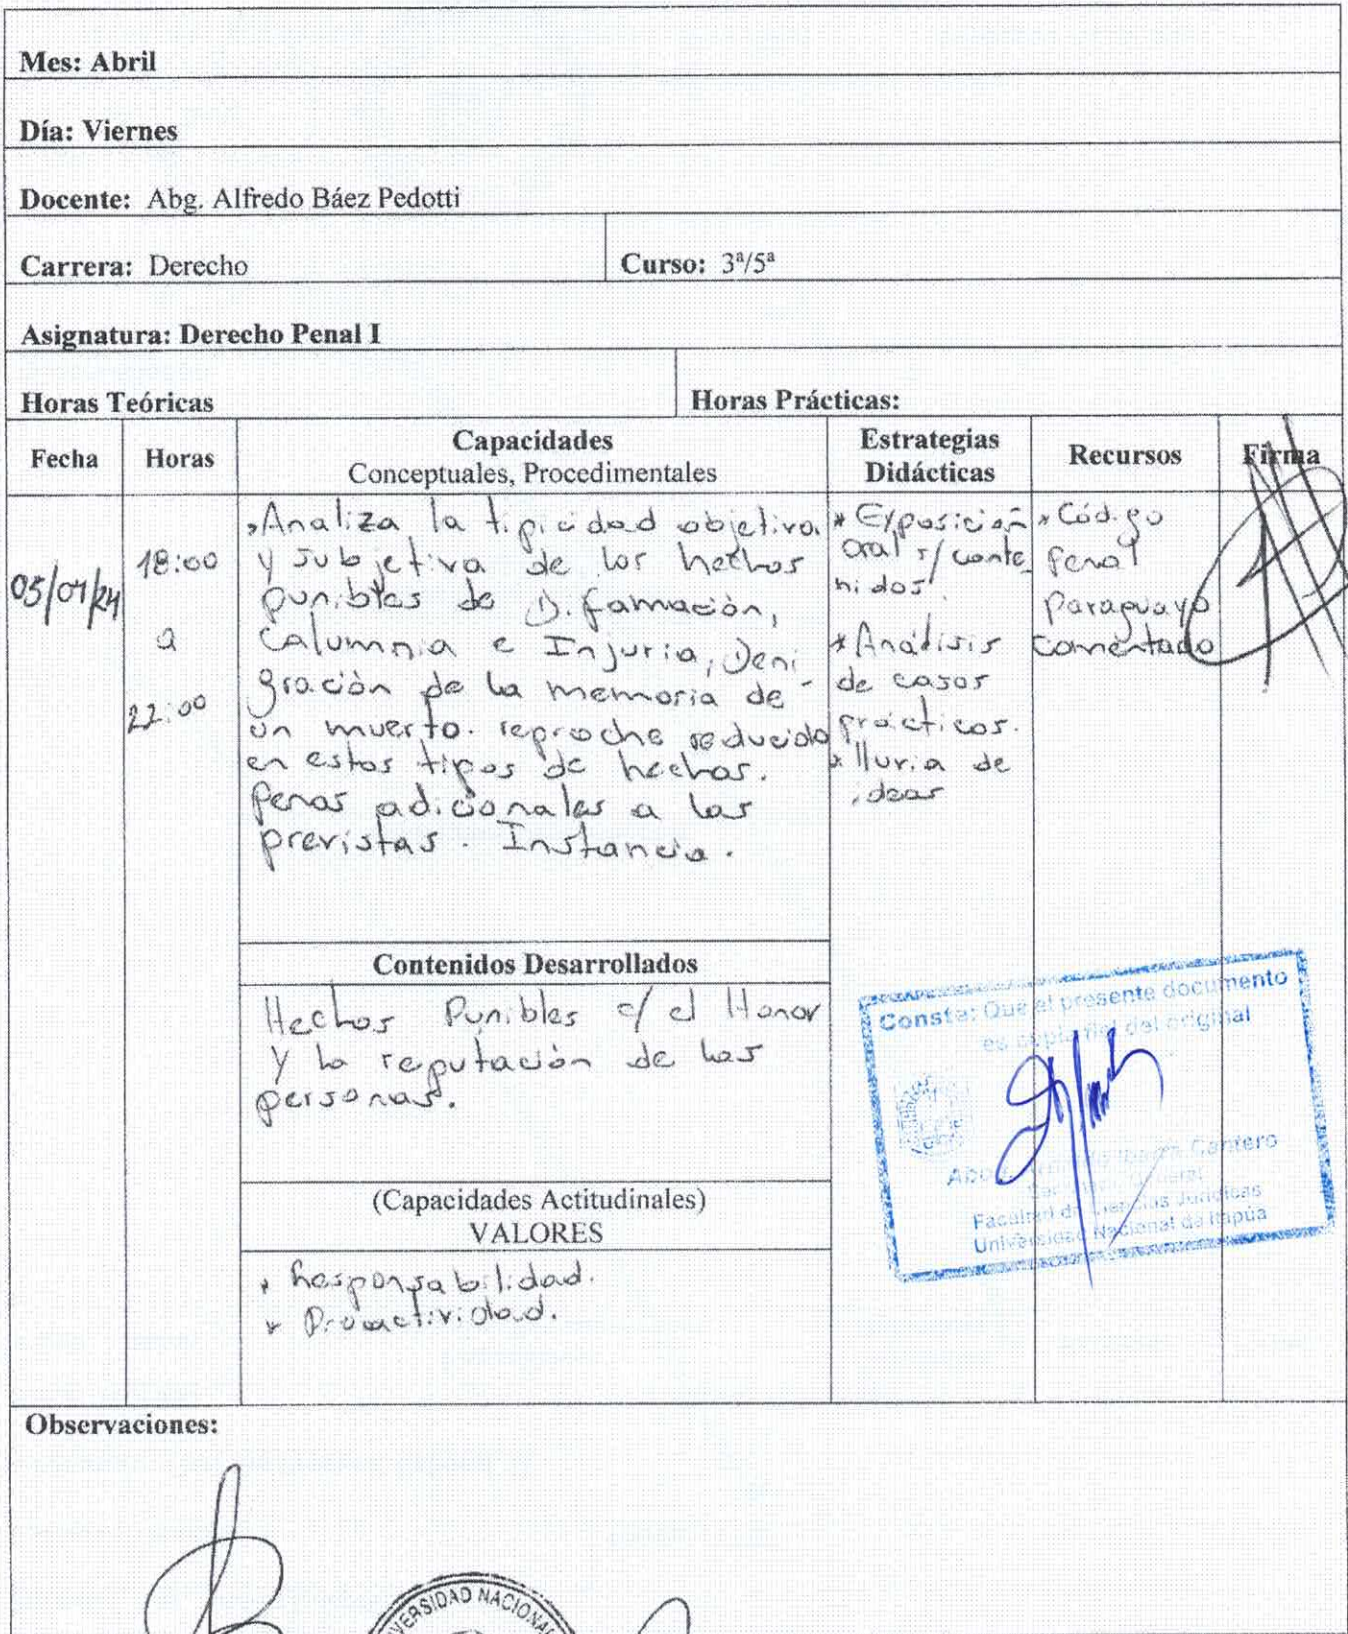 Mes: Abril
Día: Viernes
Docente: Abg. Alfredo Báez Pedotti
Carrera: Derecho
Curso: 3ª/5ª
Asignatura: Derecho Penal I
Horas Teóricas
Horas Prácticas:
Fecha
Horas
Capacidades
Conceptuales, Procedimentales
Estrategias
Didácticas
Recursos
Firma
05/04/24
18:00
a
22:00
*Analiza la tipicidad objetiva
y subjetiva de los hechos
punibles de Difamación,
Calumnia e Injuria, Deni
gración de la memoria de
un muerto. reproche reducido
en estos tipos de hechos.
Penas adicionales a las
previstas. Instancia.
* Exposición
oral s/ conte
nidos.
*Análisis
de casos
prácticos.
* lluvia de
ideas
* Código
Penal
Paraguayo
comentado
Contenidos Desarrollados
Hechos Punibles c/ el Honor
y la reputación de las
personas.
(Capacidades Actitudinales)
VALORES
* Responsabilidad.
* Proactividad.
Consta: Que el presente documento
es copia fiel del original
Cantero
Facultad de Ciencias Jurídicas
Universidad Nacional de Itapúa
Observaciones:
UNIVERSIDAD NACIONAL